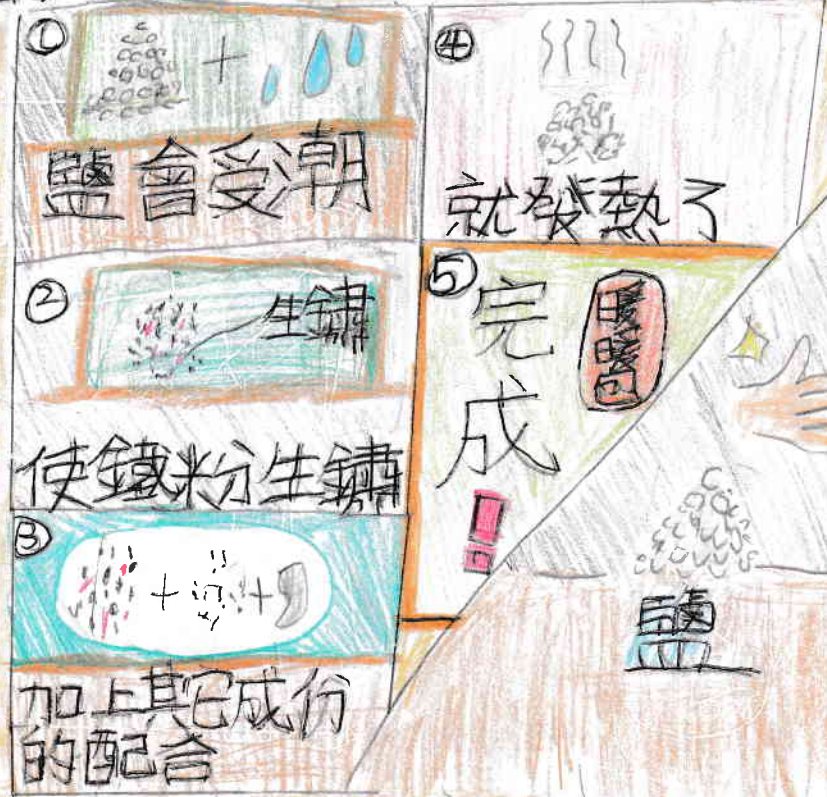 ①
鹽會受潮
②
生鏽
使鐵粉生鏽
③
加上其它成份
的配合
④
就發熱了
⑤
完
成
!
鹽